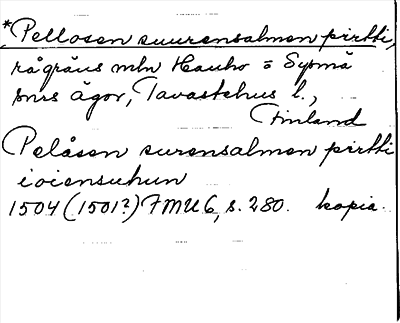 *Pellosen suurensalmen pirtti,
rågräns mln Hauho o Sysmä
snrs ägor, Tavastehus l.,
Finland
Pelåsen surensalmen pirtti
i oiensuhun
1504 (1501?) FMU 6, s. 280. kopia.